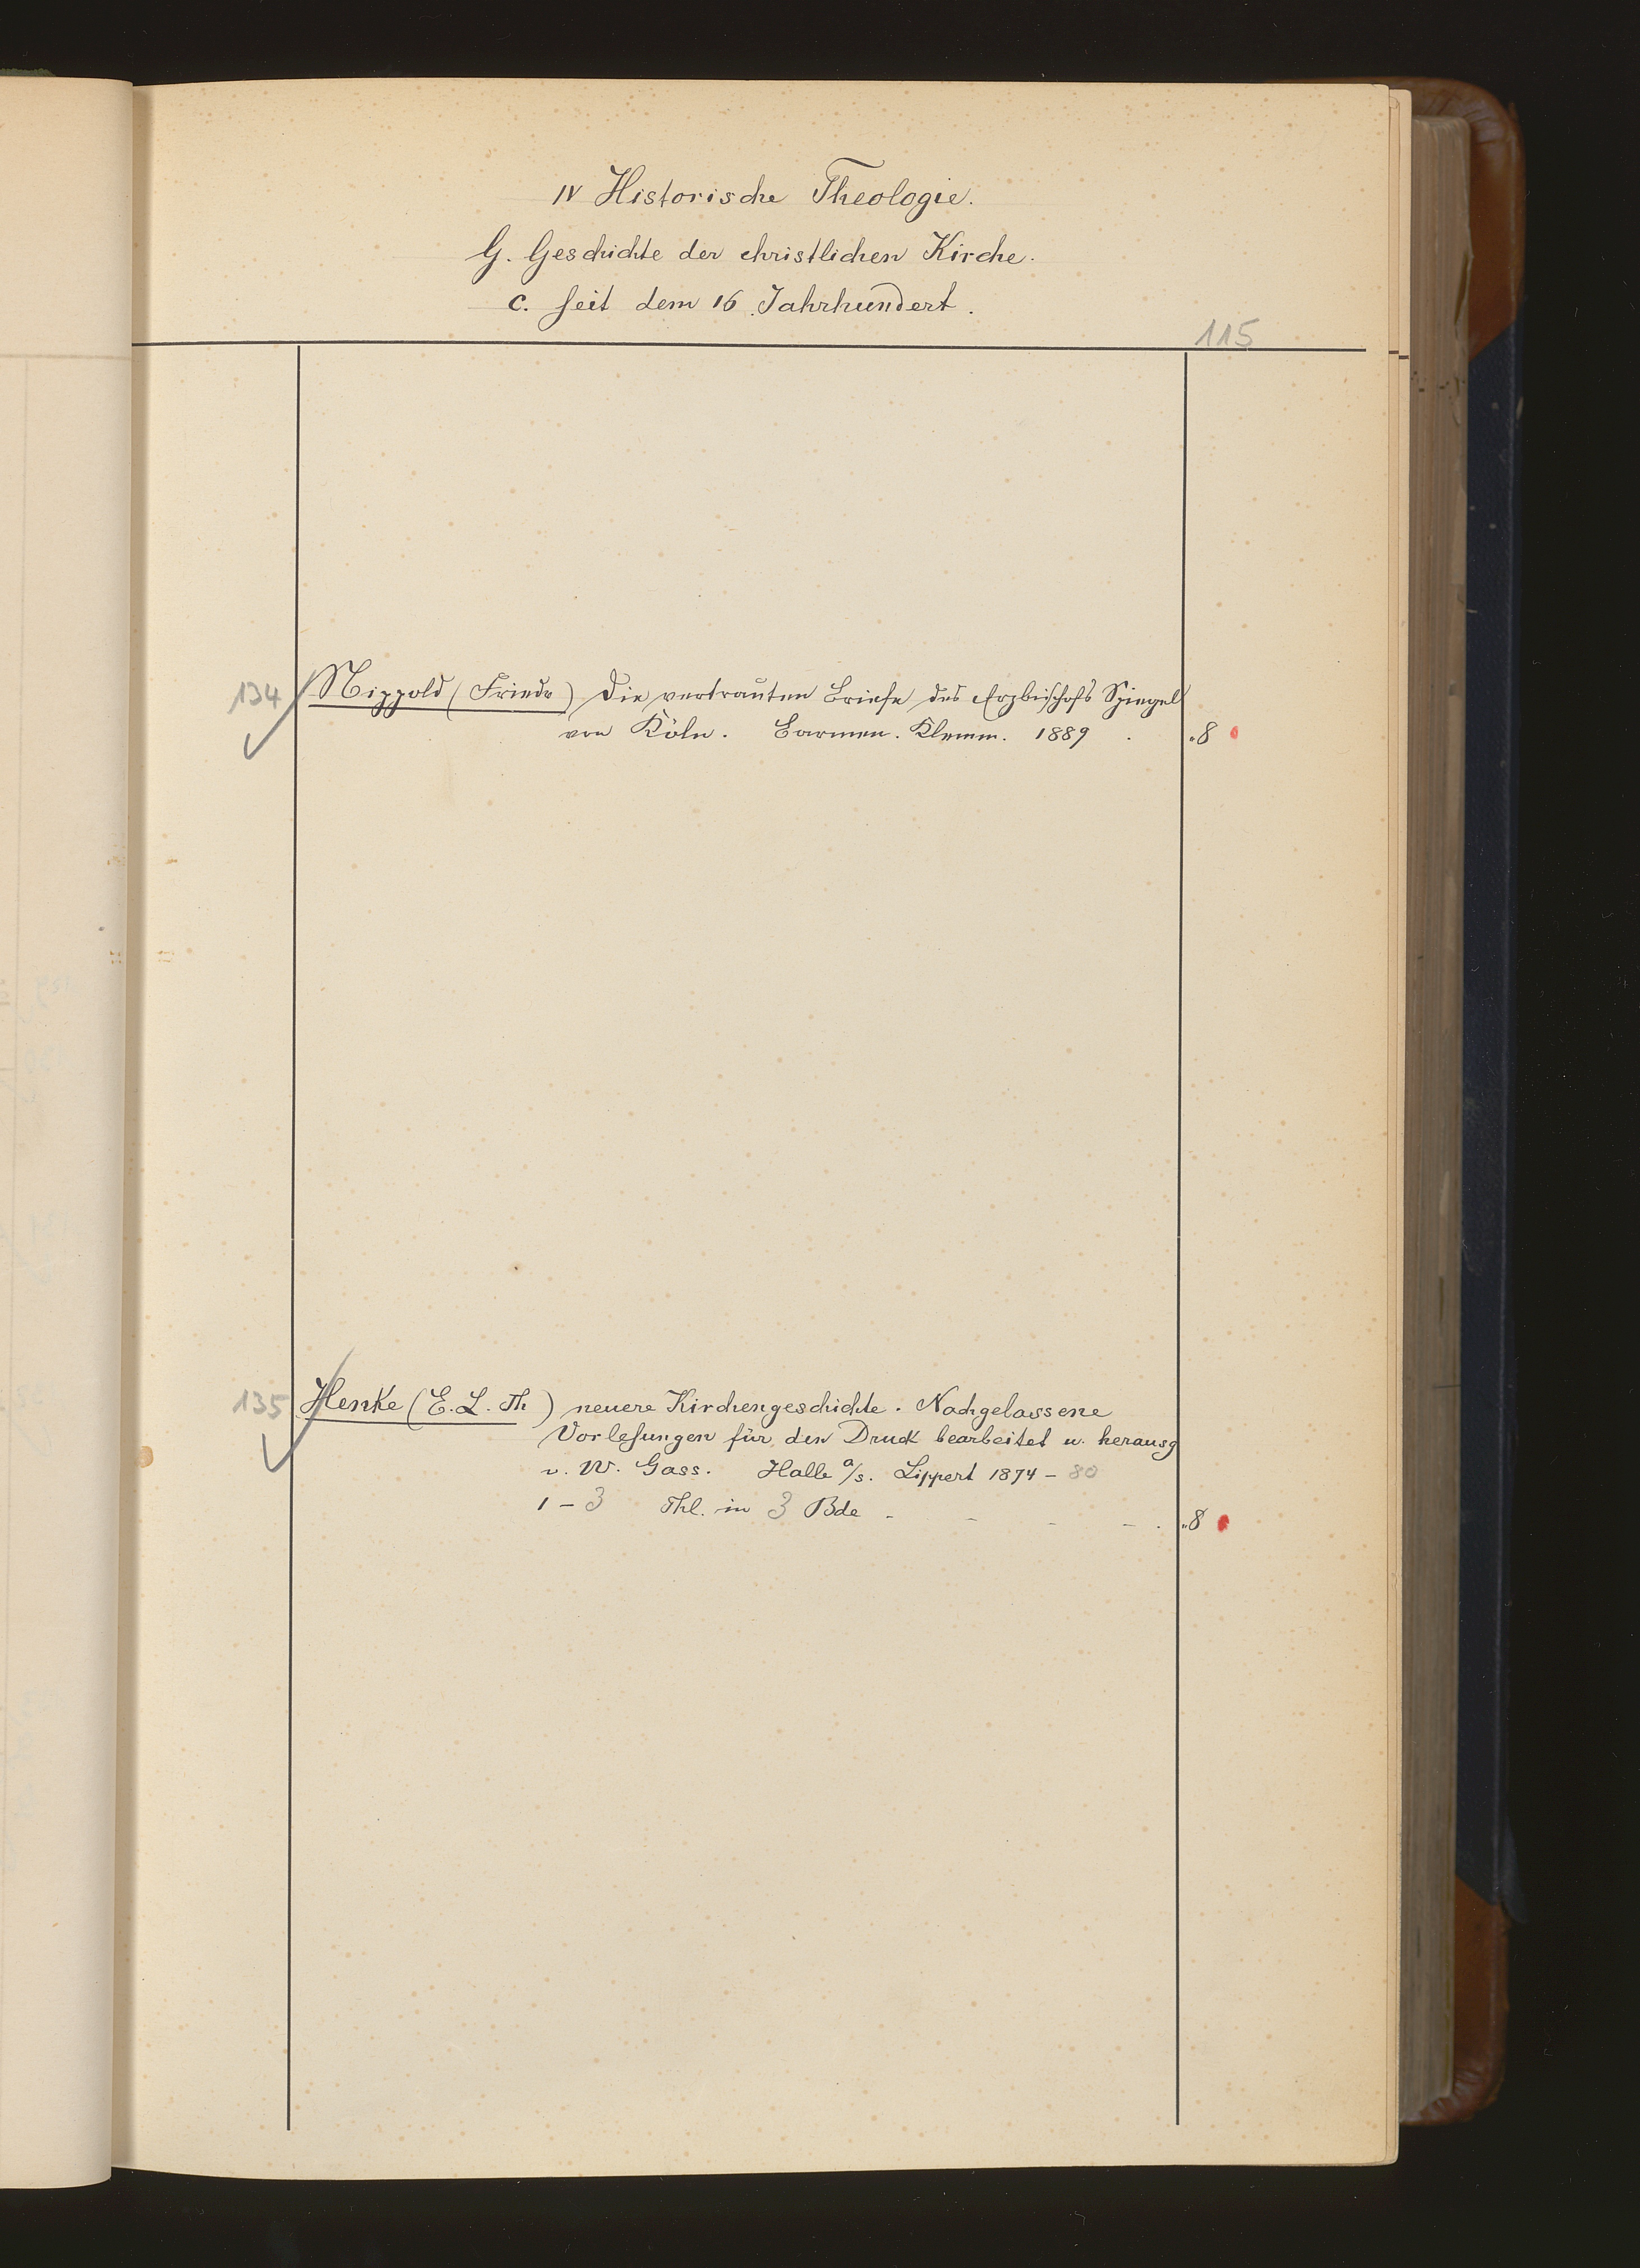 IV Historische Theologie.
G. Geschichte der christlichen Kirche.
c. seit dem 16. Jahrhundert.
115
134 Nippold (Friedr) Die vertrauten Briefe des Erzbischofs Spiegel
von Köln. Barmen. Klemm. 1889 . „8
135 Henke (E. L. Th) neuere Kirchengeschichte. Nachgelassene
Vorlesungen für den Druck bearbeitet u. herausg
v. W. Gass. Halle a/s. Lippert 1874 - 80
1 - 3 Thl. in 3 Bde - - - - . „8